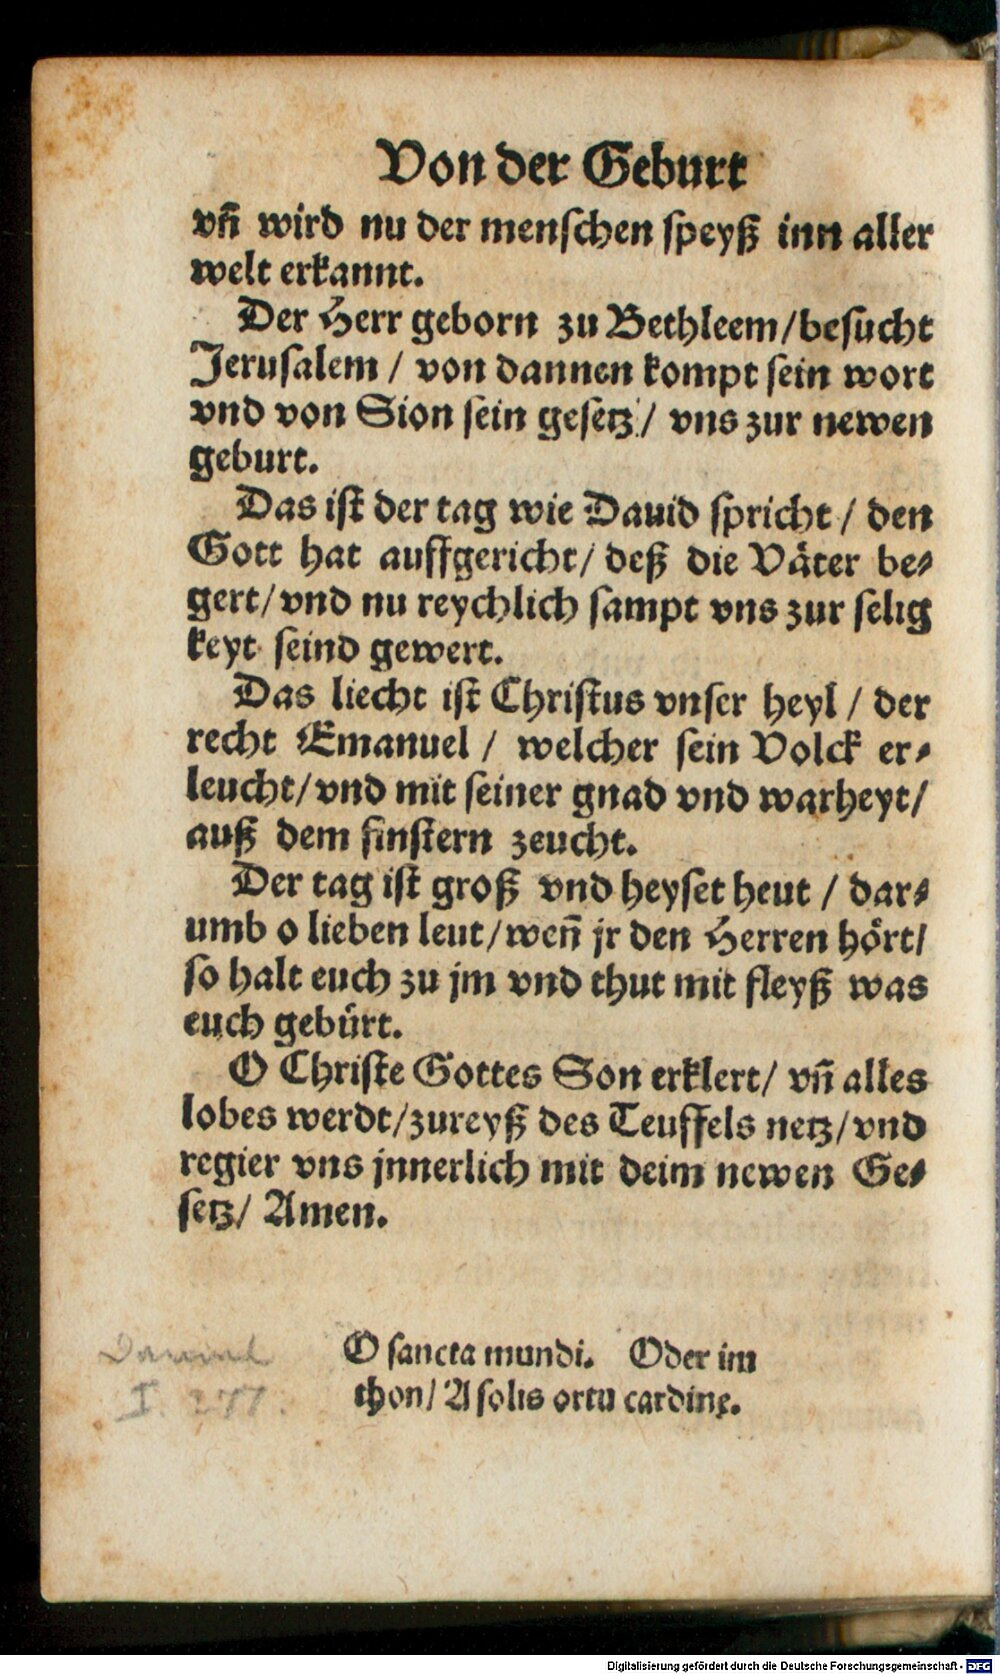 Von der Geburt
vñ wird nu der menschen speyß inn aller
welt erkannt.
Der Herr geborn zu Bethleem/besucht
Jerusalem / von dannen kompt sein wort
vnd von Sion sein gesetz / vns zur newen
geburt.
Das ist der tag wie Dauid spricht / den
Gott hat auffgericht/ deß die Väter be⸗
gert/vnd nu reychlich sampt vns zur selig
keyt seind gewert.
Das liecht ist Christus vnser heyl / der
recht Emanuel / welcher sein Volck er⸗
leucht/vnd mit seiner gnad vnd warheyt/
auß dem finstern zeucht.
Der tag ist groß vnd heyset heut / dar⸗
umb o lieben leut/weñ jr den Herren hört/
so halt euch zu jm vnd thut mit fleyß was
euch gebürt.
O Christe Gottes Son erklert/ vñ alles
lobes werdt/zureyß des Teuffels netz/vnd
regier vns jnnerlich mit deim newen Ge⸗
setz/ Amen.
O sancta mundi. Oder im
thon/ A solis ortu cardine.
Daniel
I. 277.
Digitalisierung gefördert durch die Deutsche Forschungsgemeinschaft - DFG